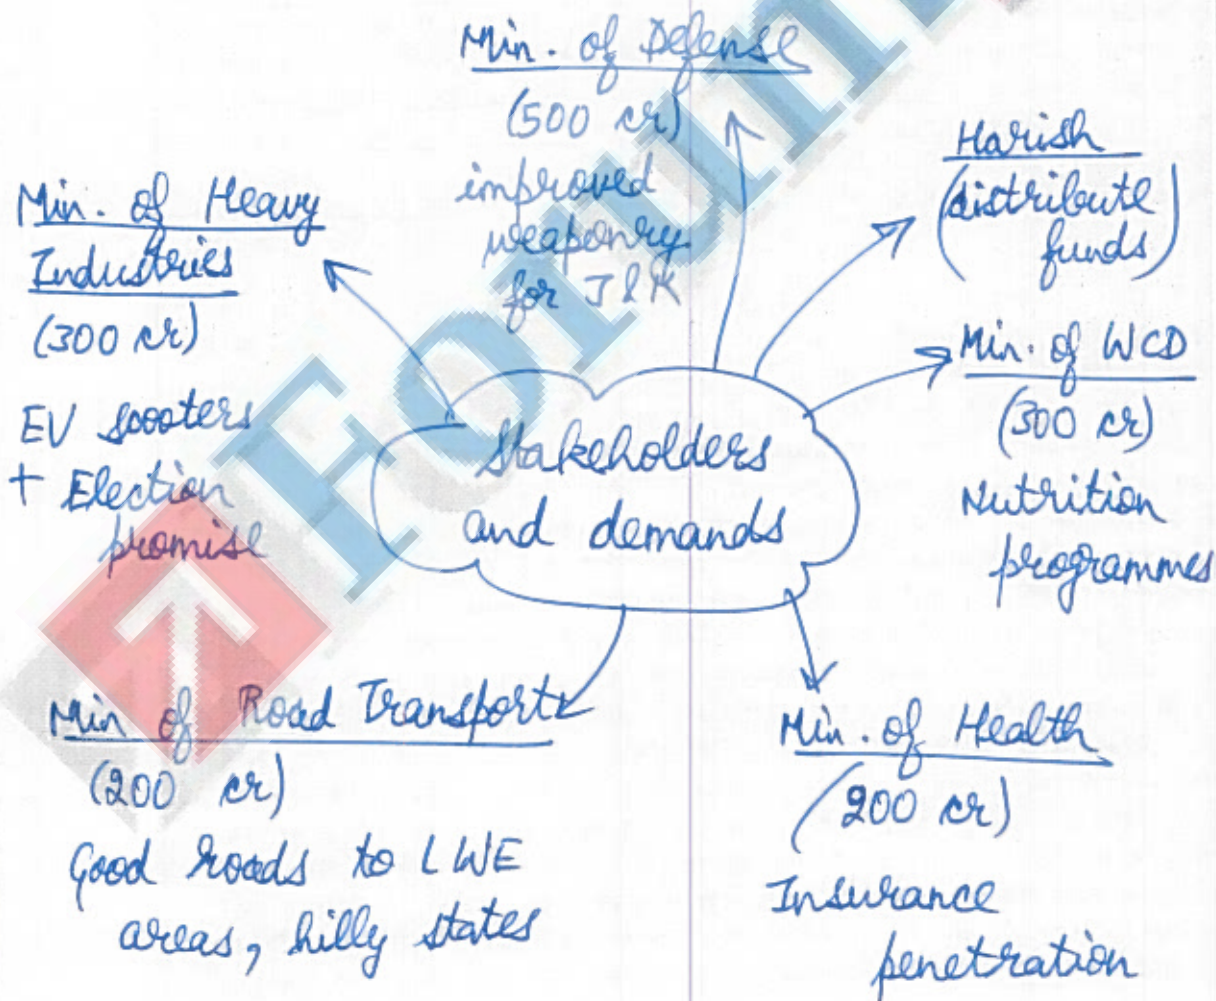 Min. of Defense
(500 cr)
improved
weaponry
for J & K
Harish
(distribute
funds)
Min. of Heavy
Industries
(300 cr)
EV scooters
+ Election
promise
Min. of WCD
(300 cr)
Nutrition
programmes
Stakeholders
and demands
Min of Road Transport
(200 cr)
Good roads to LWE
areas, hilly states
Min. of Health
(200 cr)
Insurance
penetration
Forum